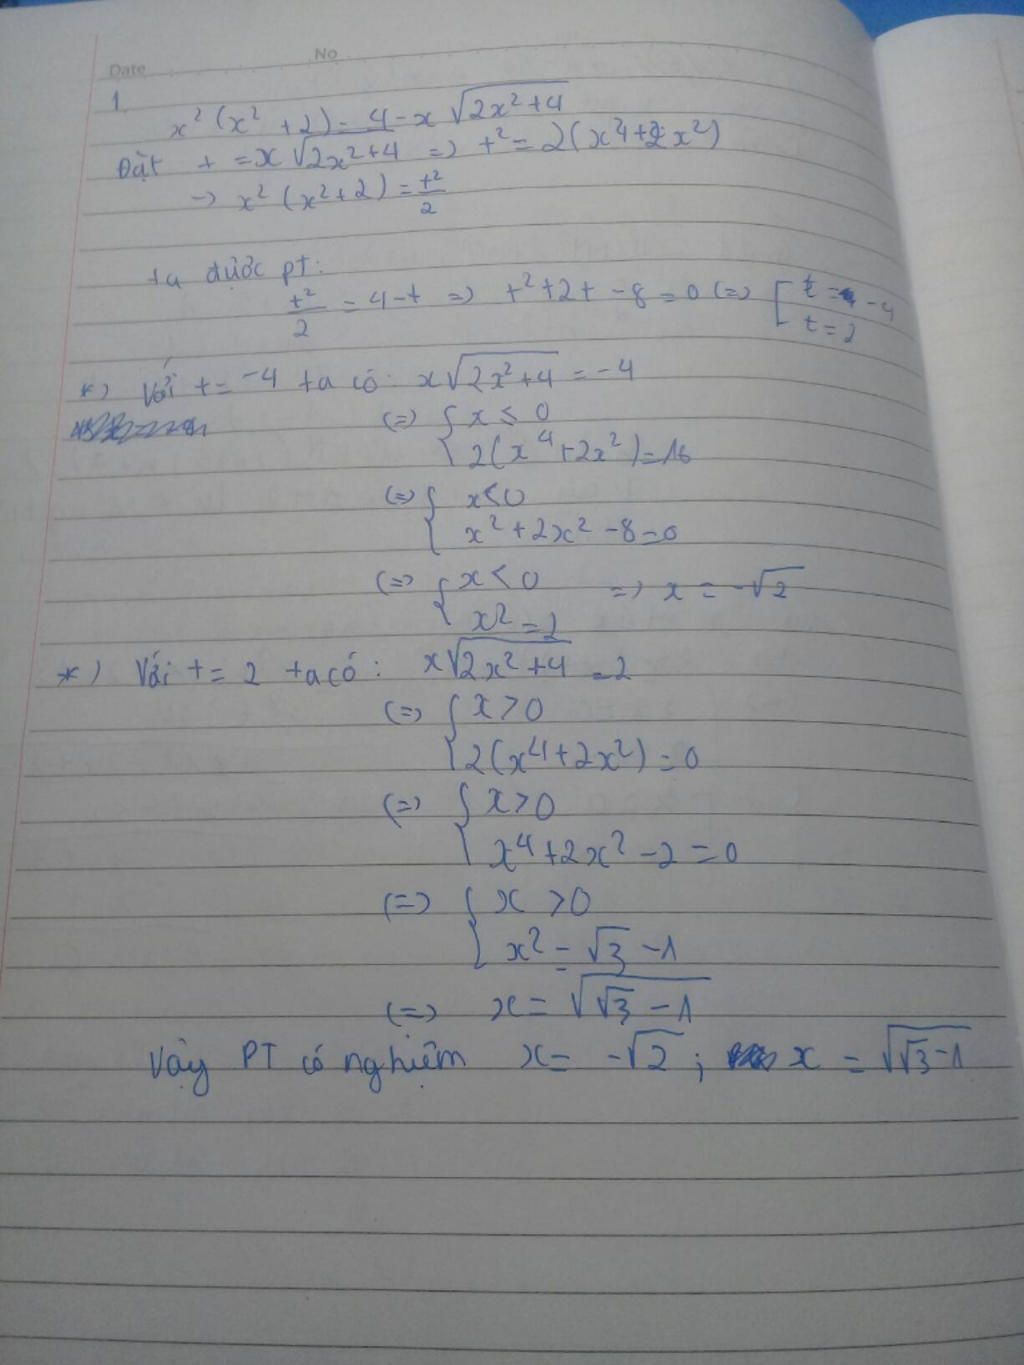 Date No
1.
x² (x² + 2) = 4 - x √(2x² + 4)
Đặt t = x √(2x² + 4) => t² = 2(x⁴ + 2x²)
→ x² (x² + 2) = t²/2
ta được pt:
t²/2 = 4 - t => t² + 2t - 8 = 0 (=) [ t = -4
t = 2
*) Với t = -4 ta có: x√(2x² + 4) = -4
(=) { x ≤ 0
2(x⁴ + 2x²) = 16
(=) { x < 0
x² + 2x² - 8 = 0
(=) { x < 0 => x = -√2
x² = 2
*) Với t = 2 ta có: x√(2x² + 4) = 2
(=) { x > 0
2(x⁴ + 2x²) = 0
(=) { x > 0
x⁴ + 2x² - 2 = 0
(=) { x > 0
x² = √3 - 1
(=) x = √(√3 - 1)
Vậy PT có nghiệm x = -√2 ; x = √(√3 - 1)